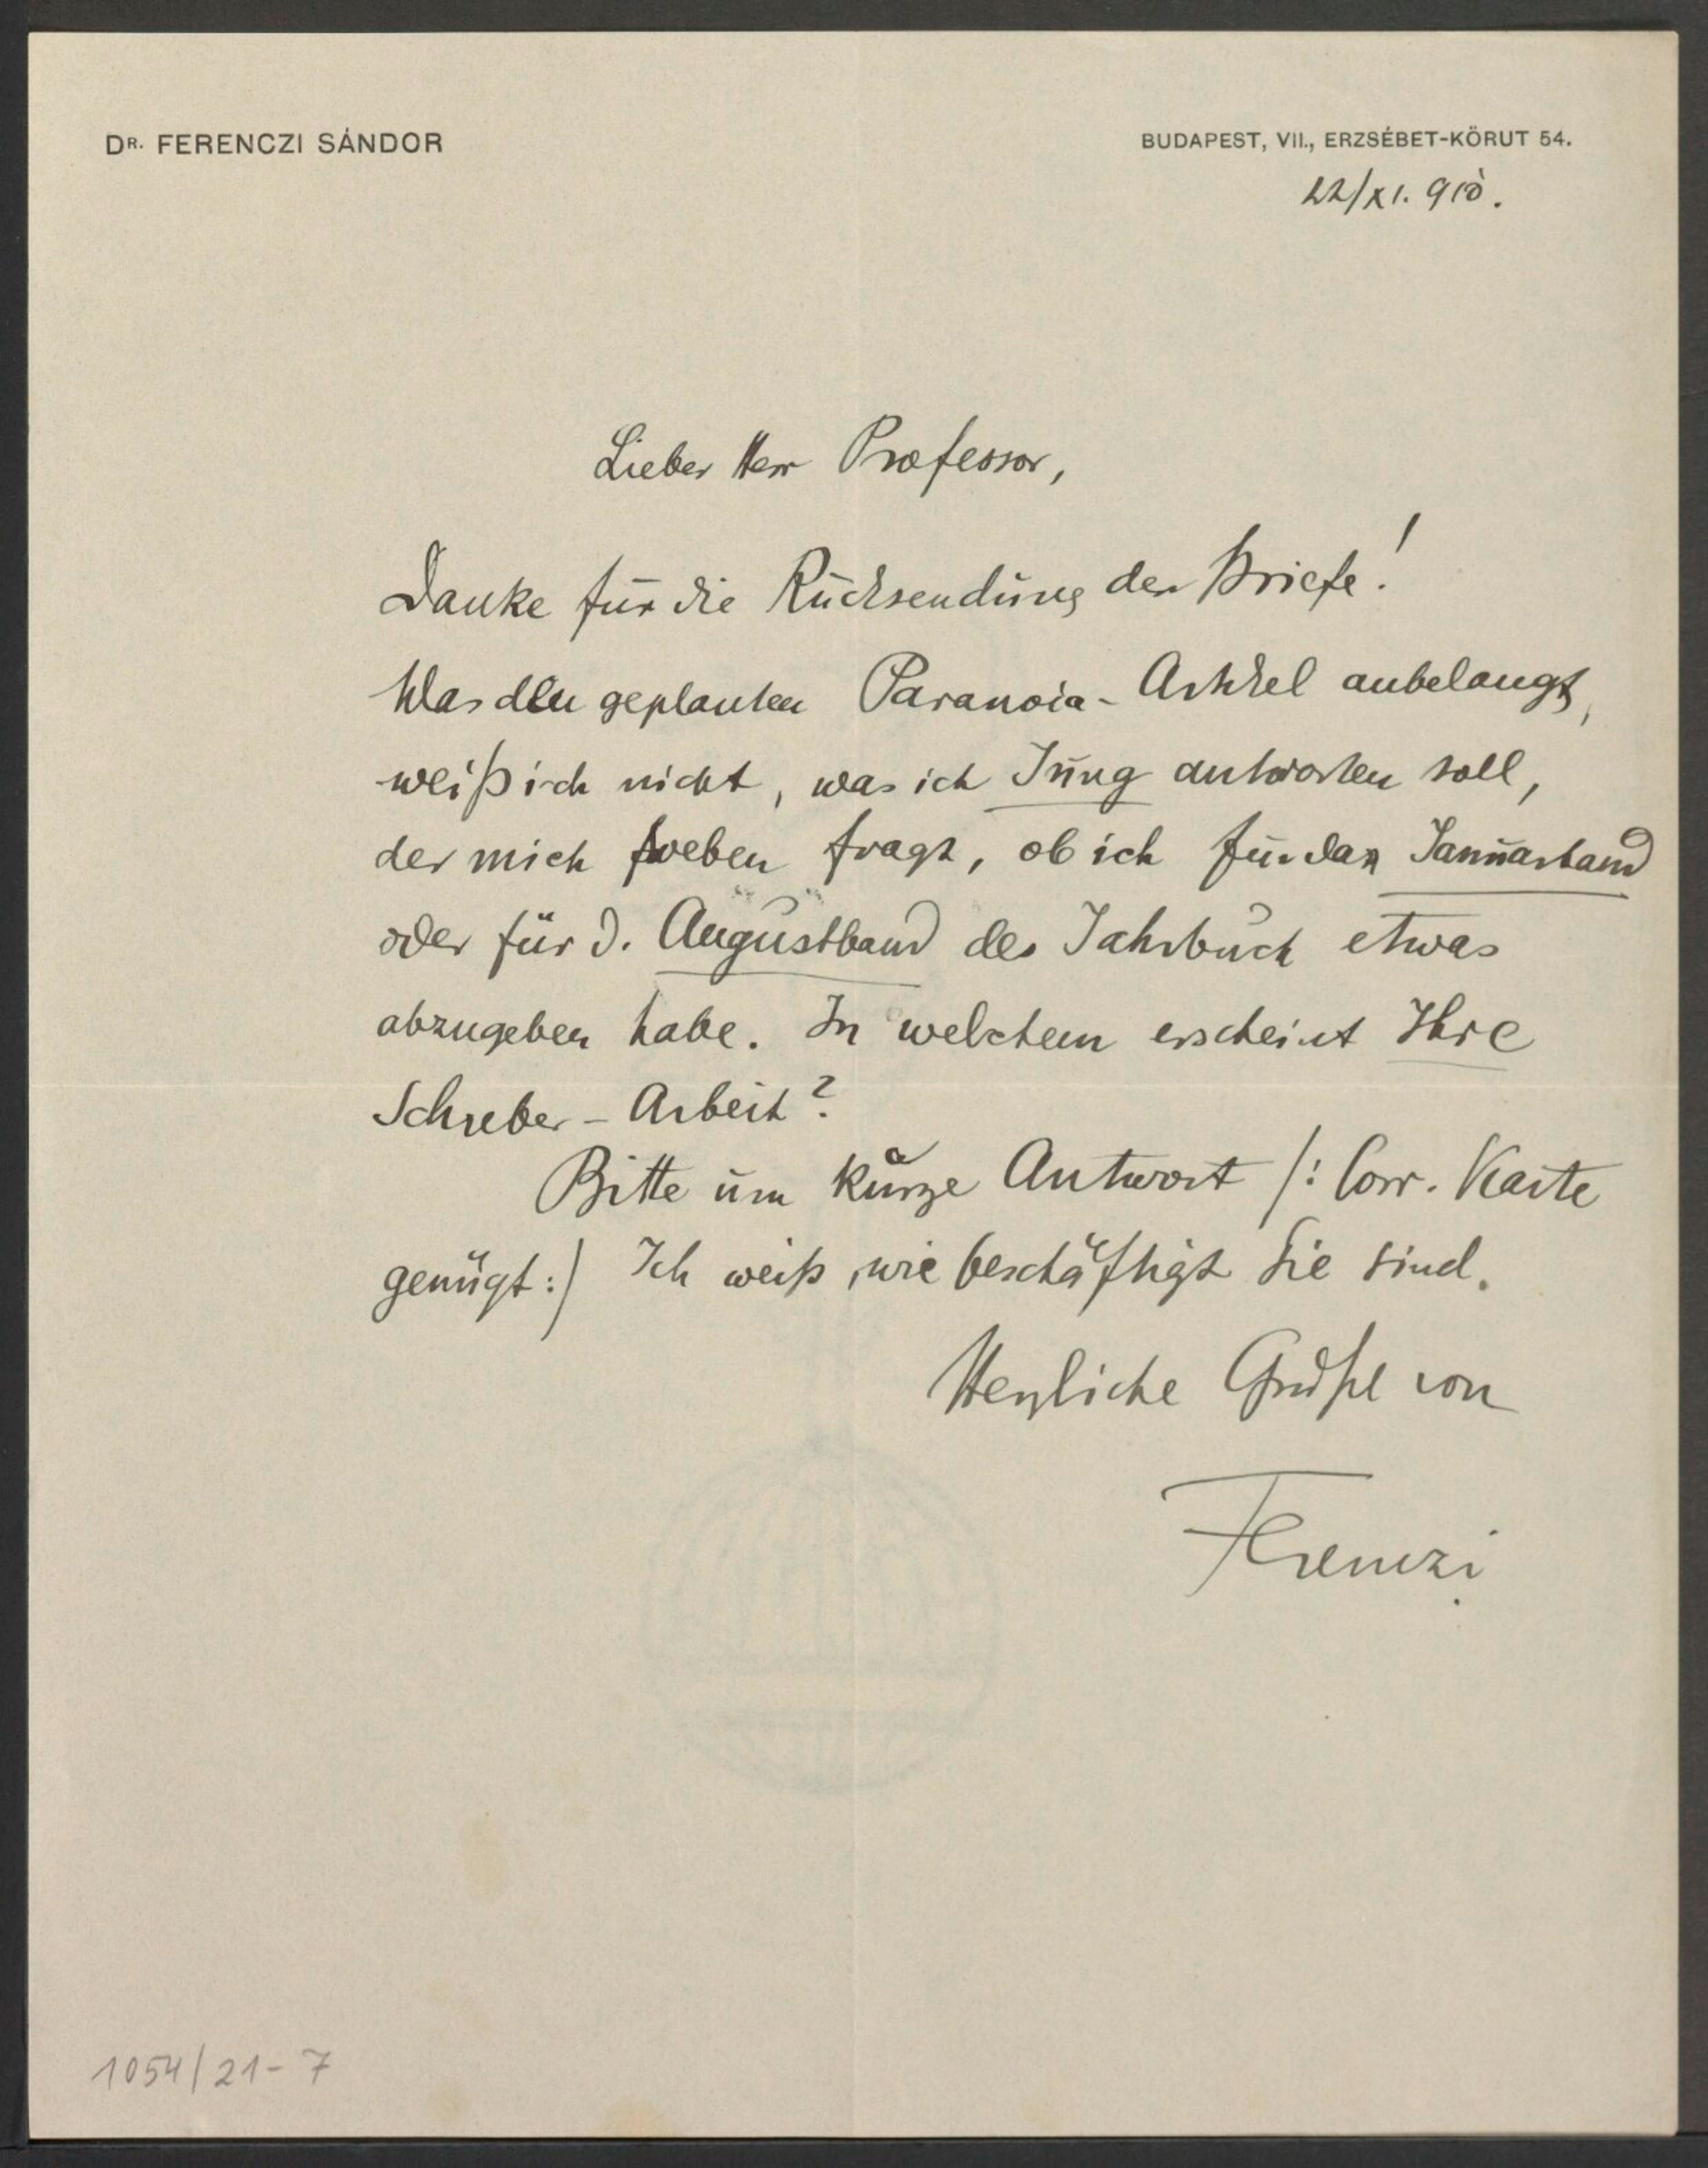 DR. FERENCZI SÁNDOR
BUDAPEST, VII., ERZSÉBET-KÖRUT 54.
22/XI. 910.
Lieber Herr Professor,
Danke für die Rücksendung der Briefe!
Was den geplanten Paranoia-Artikel anbelangt,
weiß ich nicht, was ich Jung antworten soll,
der mich soeben fragt, ob ich für den Januarband
oder für d. Augustband des Jahrbuch etwas
abzugeben habe. In welchem erscheint Ihre
Schreber-Arbeit?
Bitte um kurze Antwort /: Corr. Karte
genügt :/ Ich weiß, wie beschäftigt Sie sind.
Herzliche Grüße von
Ferenczi
1054/21-7